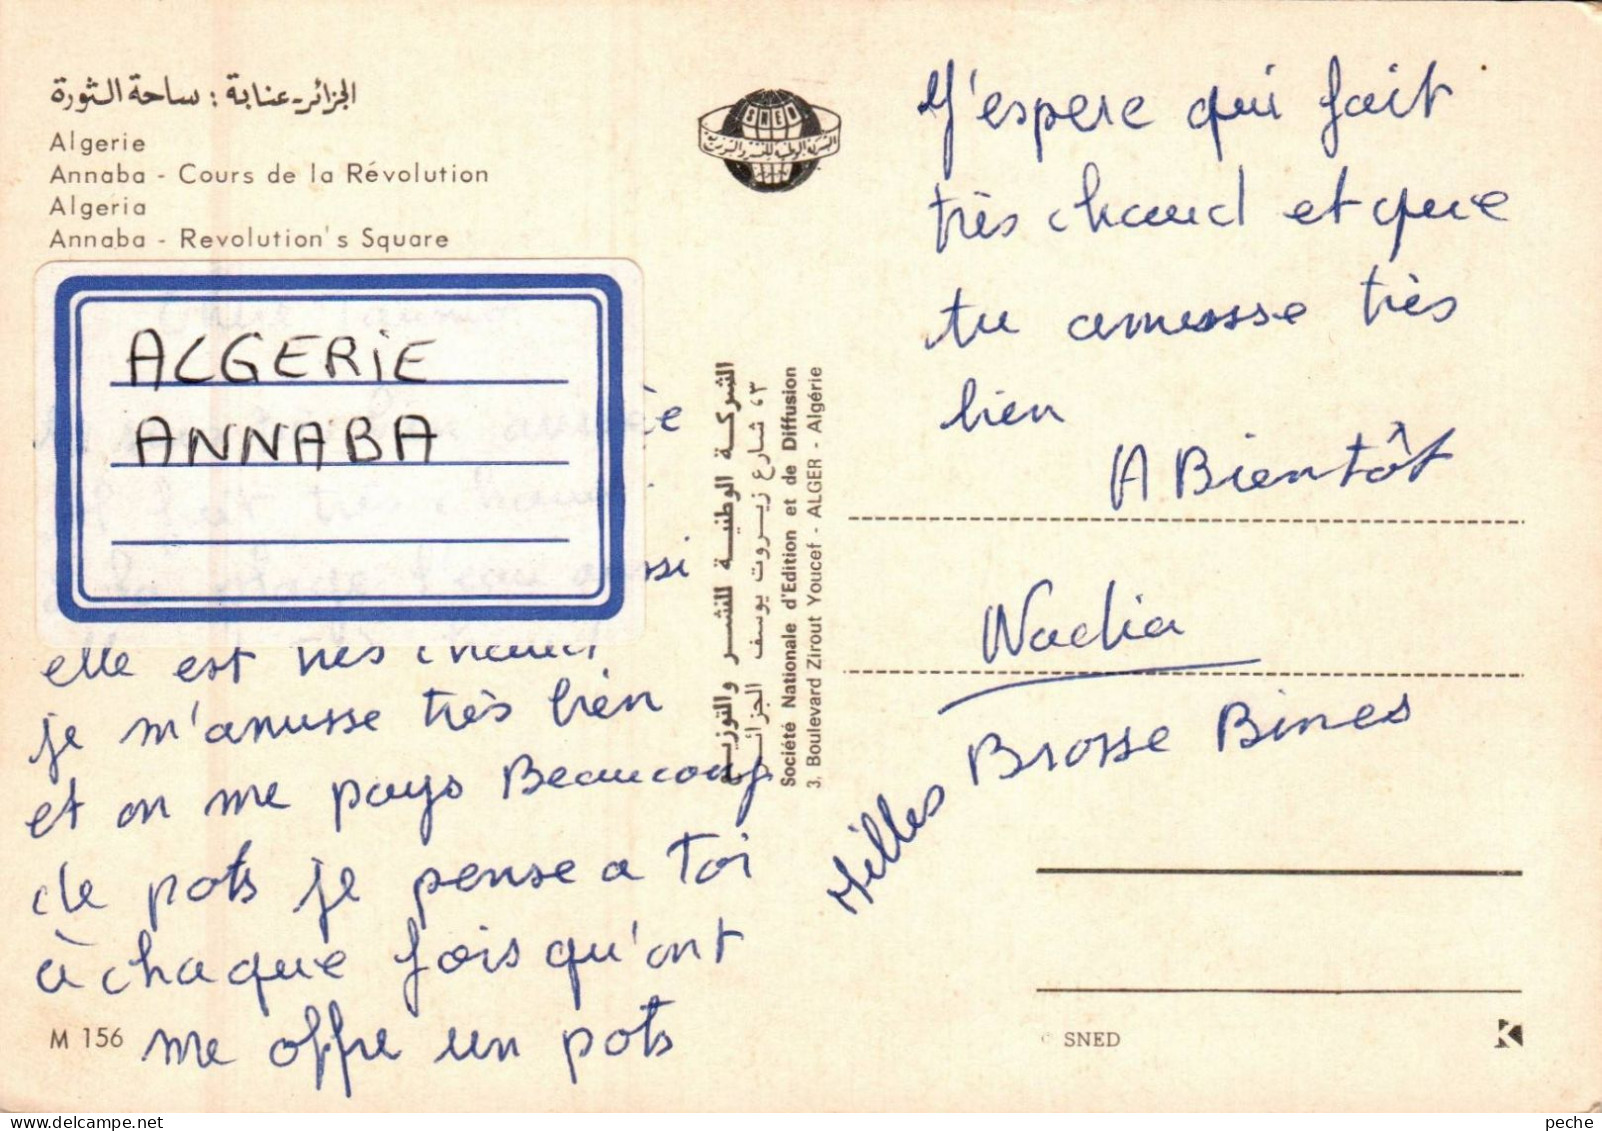 الجزائر-عنابة : ساحة الثورة
Algerie
Annaba - Cours de la Révolution
Algeria
Annaba - Revolution's Square
ALGERIE
ANNABA
elle est très chaud
je m'amusse très bien
et on me pays Beaucoup
de pots je pense a Toi
à chaque fois qu'ont
me offre un pots
M 156
SNED
الشركة الوطنية للنشر والتوزيع
الشركة الوطنية للنشر والتوزيع
٣، شارع زيروت يوسف الجزائر
Société Nationale d'Edition et de Diffusion
3, Boulevard Zirout Youcef - ALGER - Algérie
J'espere qui fait
très chaud et que
tu amussse très
bien
A Bientôt
Nadia
Milles Brosse Bines
© SNED
K
peche